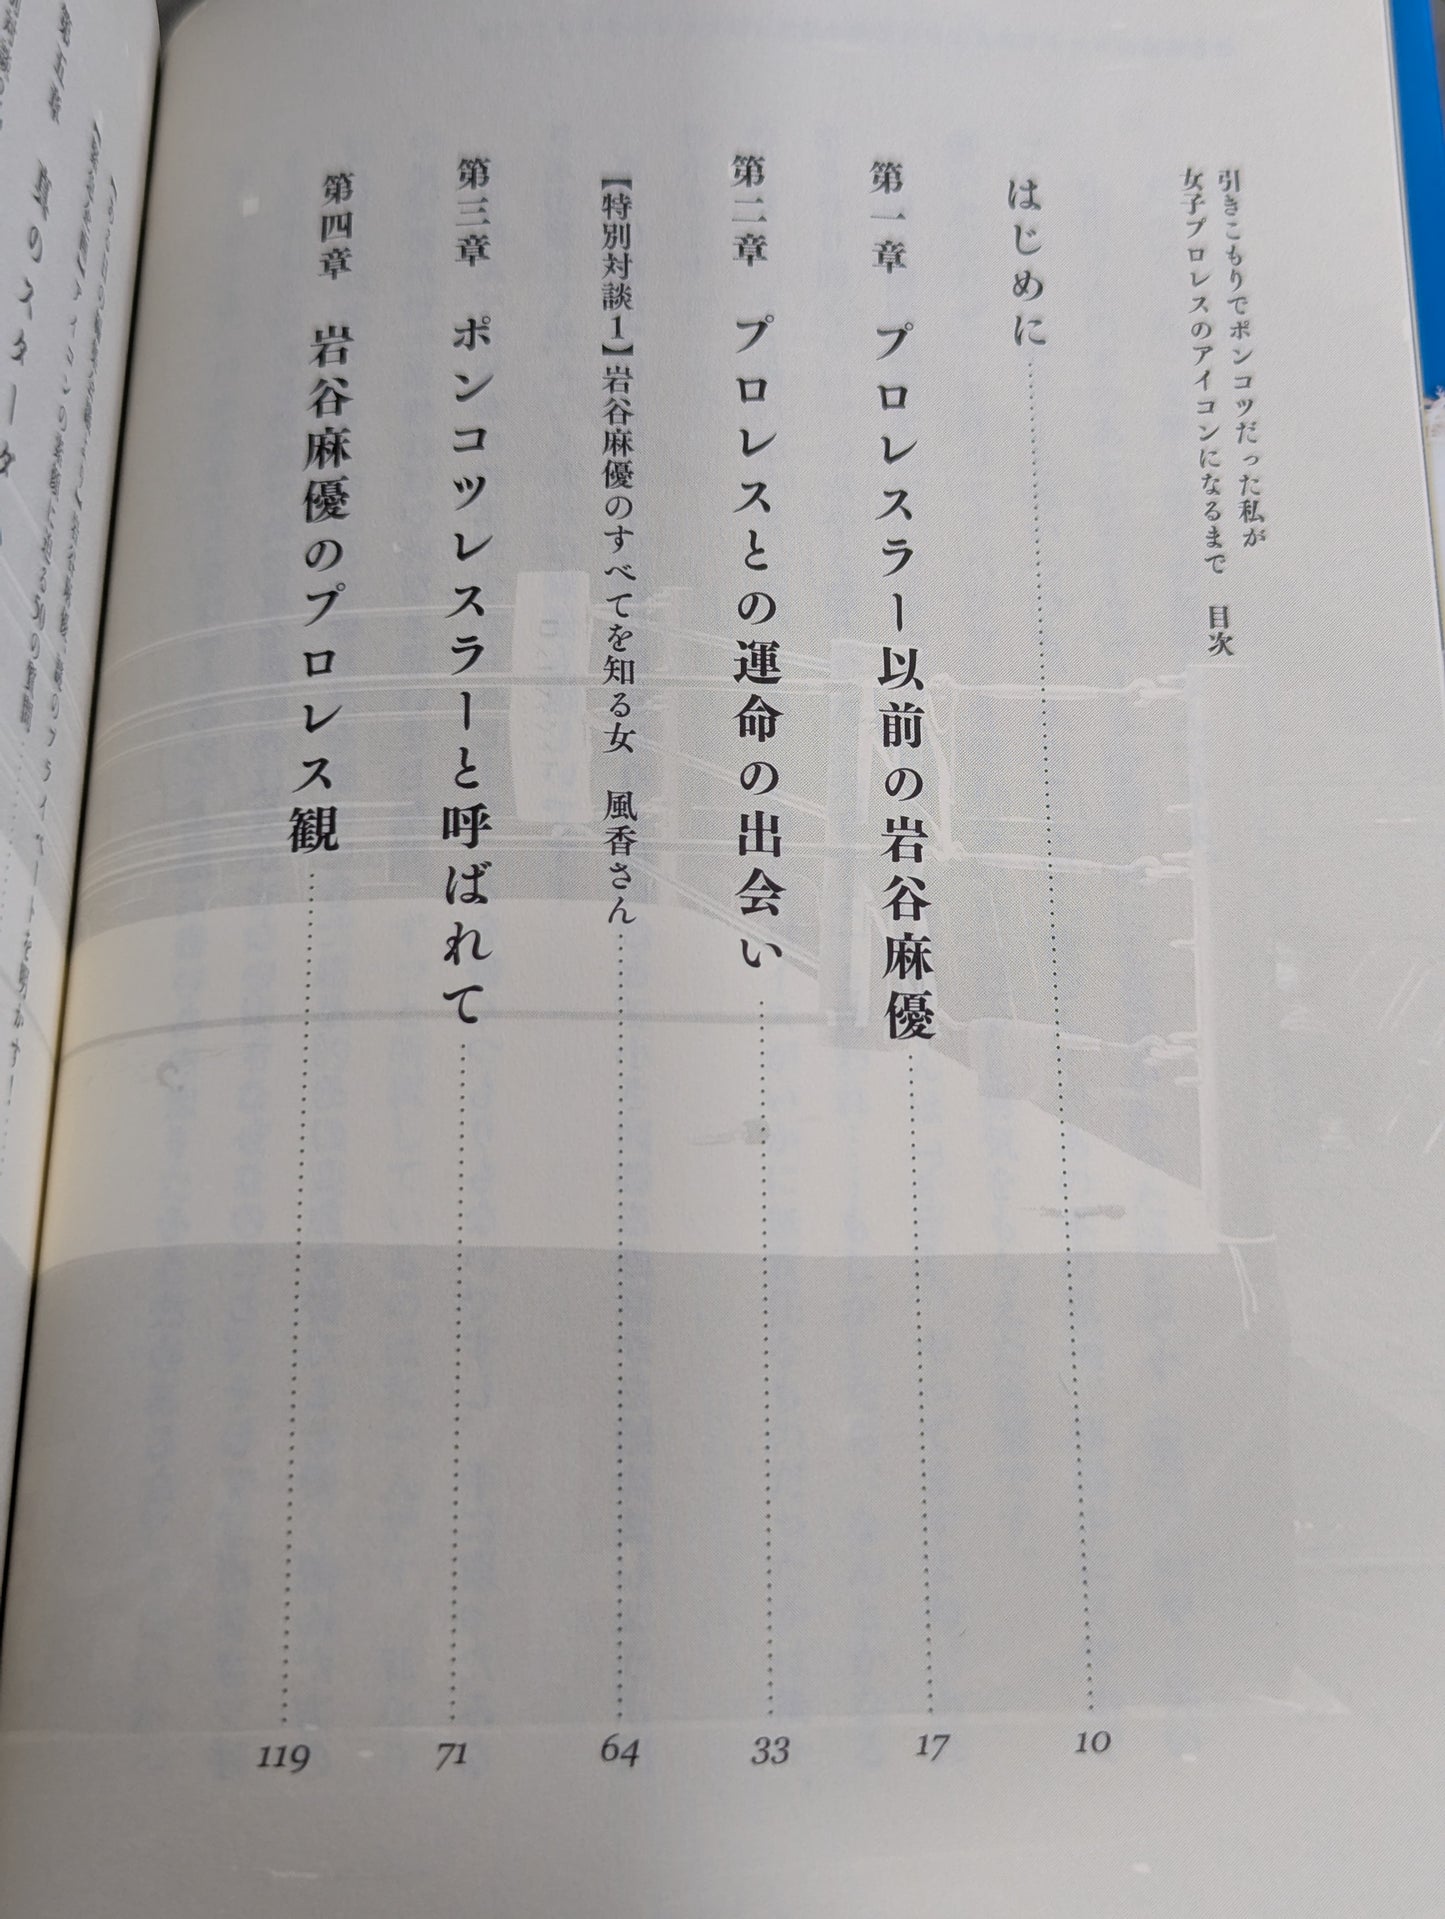 引きこもりでポンコツだった私が
女子プロレスのアイコンになるまで　目次
はじめに 10
第一章　プロレスラー以前の岩谷麻優 17
第二章　プロレスとの運命の出会い 33
【特別対談1】岩谷麻優のすべてを知る女　風香さん 64
第三章　ポンコツレスラーと呼ばれて 71
第四章　岩谷麻優のプロレス観 119